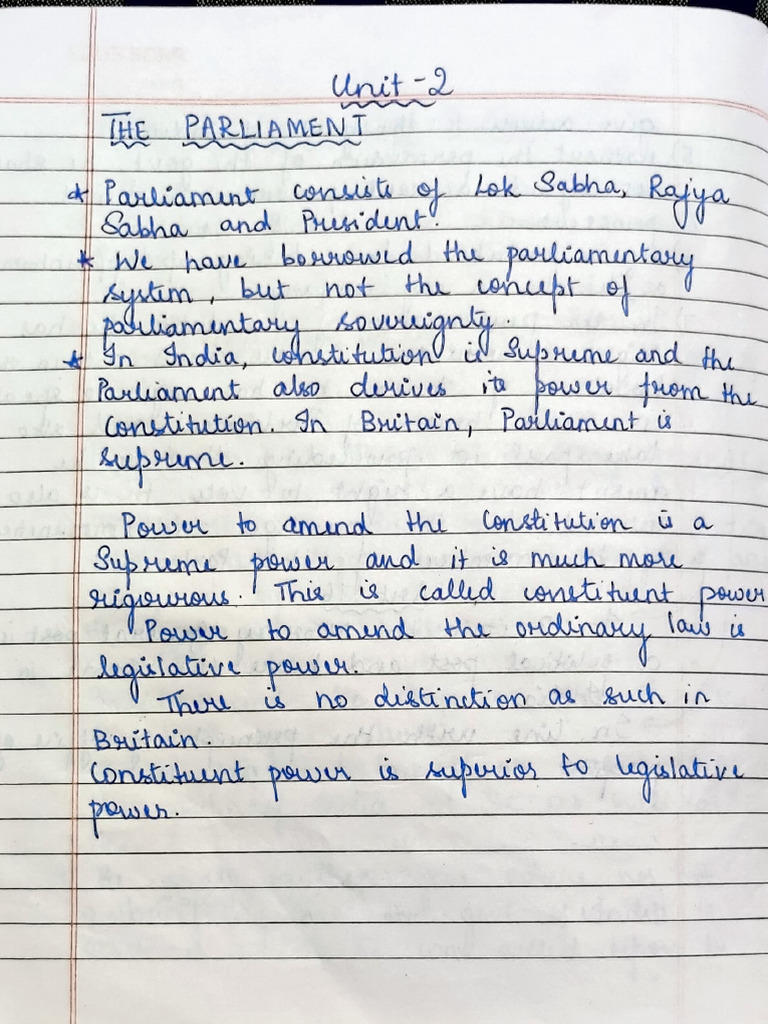 Unit-2
THE PARLIAMENT
* Parliament consists of Lok Sabha, Rajya
Sabha and President.
* We have borrowed the parliamentary
system, but not the concept of
parliamentary sovereignty
* In India, constitution is Supreme and the
Parliament also derives its power from the
Constitution. In Britain, Parliament is
supreme.
Power to amend the Constitution is a
Supreme power and it is much more
rigourous. This is called constituent power
Power to amend the ordinary law is
legislative power.
There is no distinction as such in
Britain.
Constituent power is superior to legislative
power.